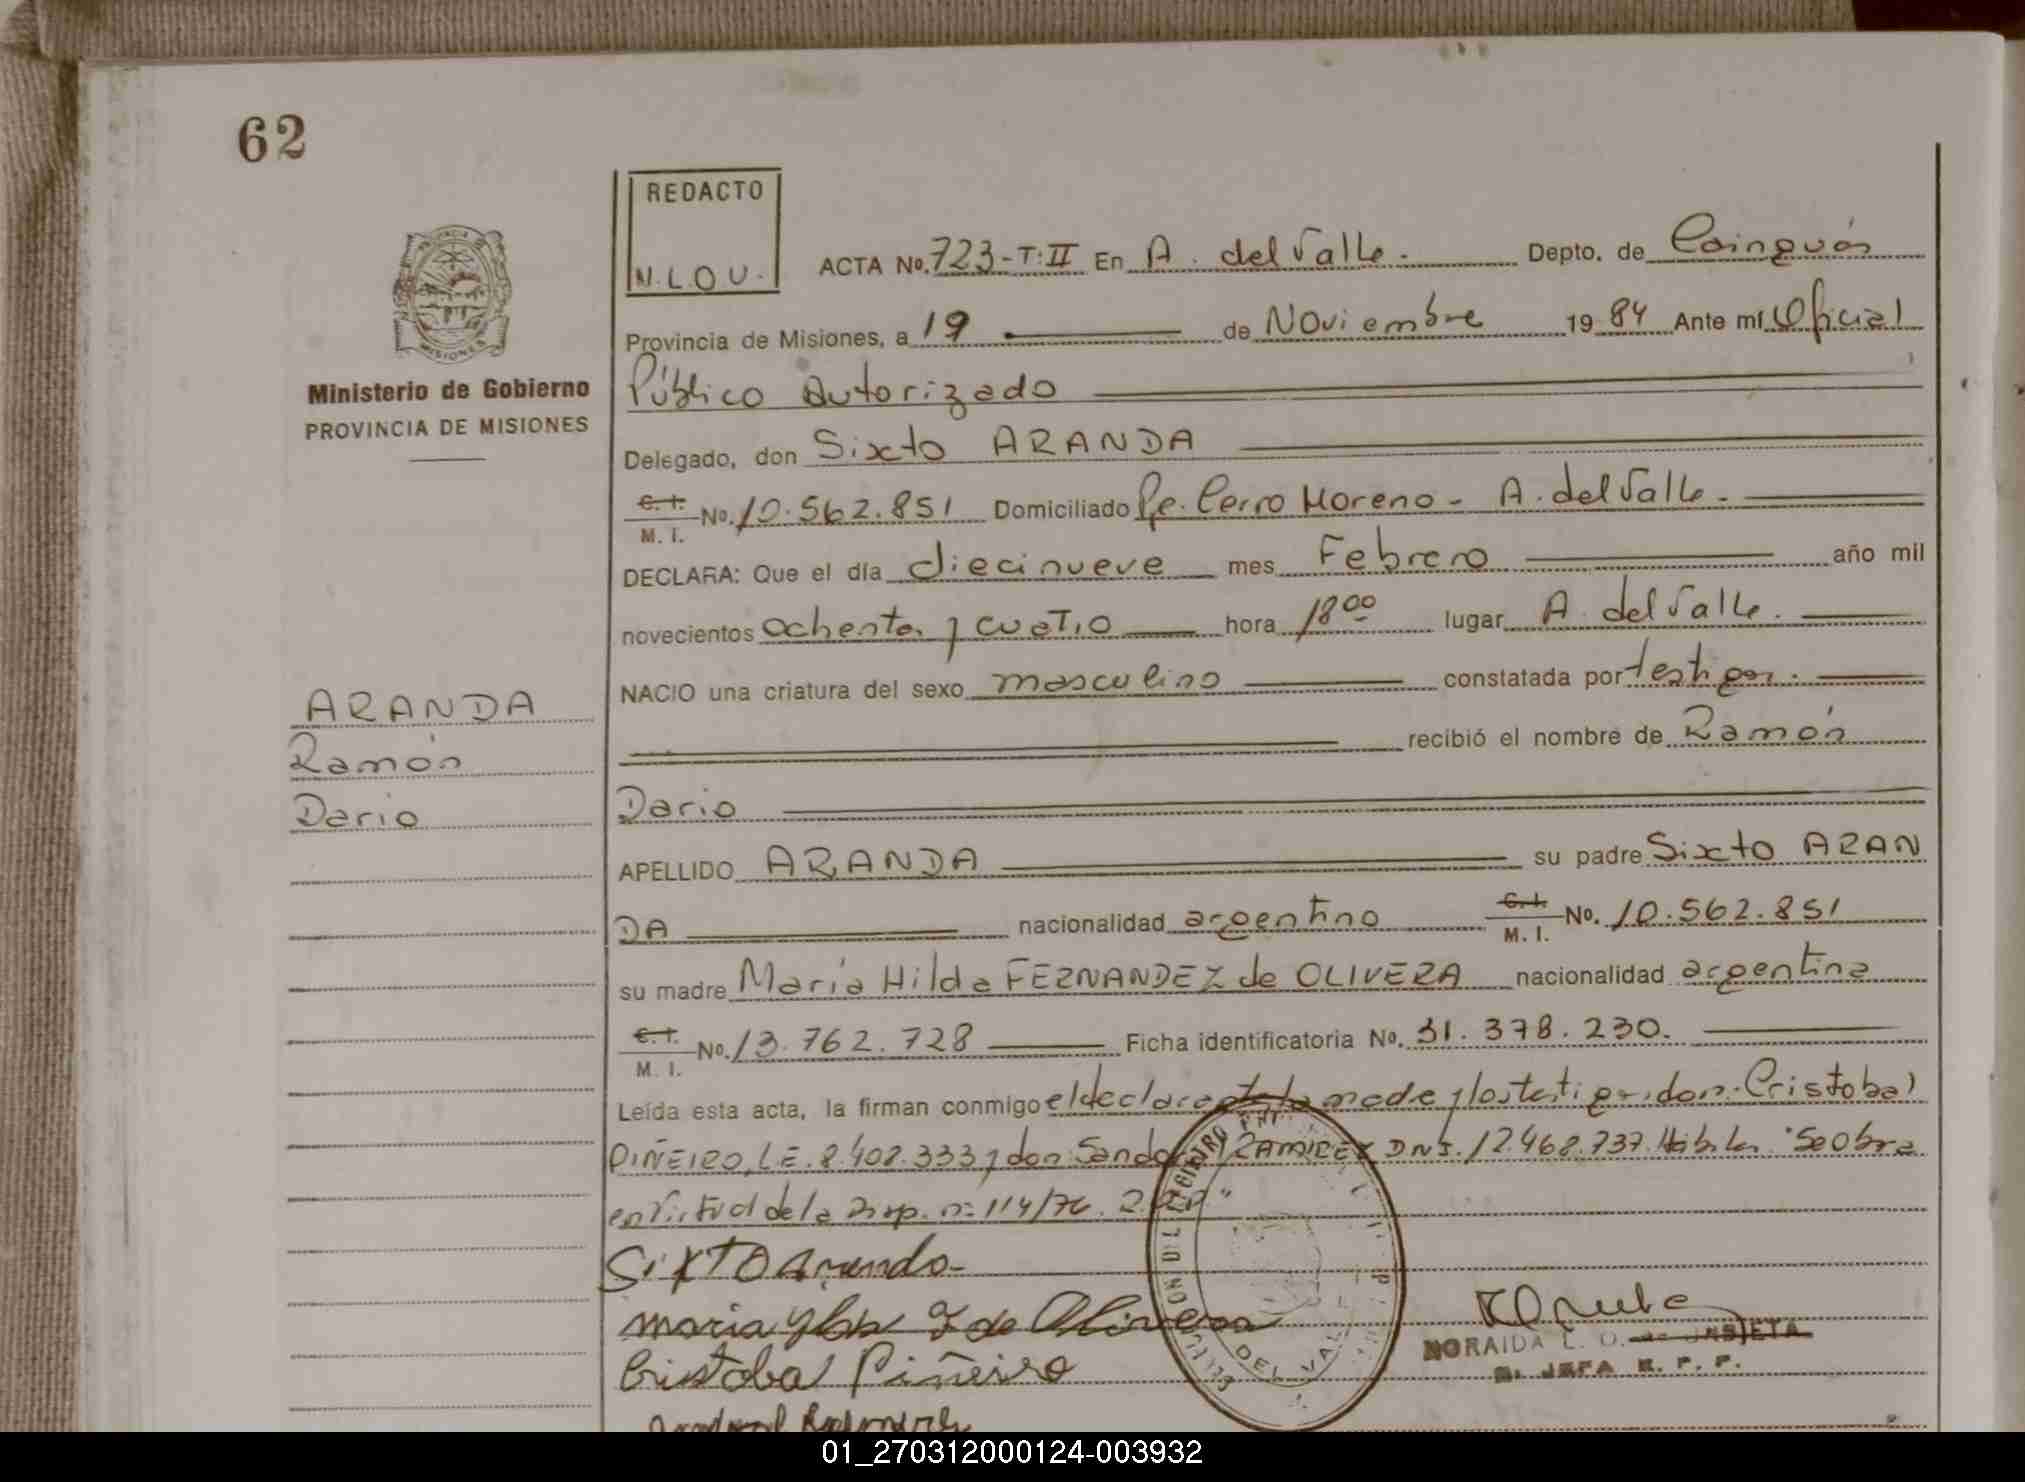 62
REDACTO
N.L.O.U.
ACTA No. 723-T:II En A. del Valle. Depto. de Cainguás
Provincia de Misiones, a 19 de Noviembre 1984 Ante mí Oficial
Público Autorizado
Ministerio de Gobierno
PROVINCIA DE MISIONES
Delegado, don Sixto ARANDA
C. I. M. I. No. 10.562.851 Domiciliado Pje. Cerro Moreno - A. del Valle.
DECLARA: Que el día diecinueve mes Febrero año mil
novecientos ochenta y cuatro hora 1800 lugar A. del Valle.
NACIO una criatura del sexo masculino constatada por testigos.
recibió el nombre de Ramón
Dario
ARANDA
Ramón
Dario
APELLIDO ARANDA su padre Sixto ARAN
DA nacionalidad argentino C. I. M. I. No. 10.562.851
su madre María Hilda FERNANDEZ de OLIVERA nacionalidad argentina
C. I. M. I. No. 13.762.728 Ficha identificatoria No. 31.378.230.
Leída esta acta, la firman conmigo el declarante la madre y los testigos don: Cristobal
PIÑEIRO, L.E. 8.402.333 y don RAMIREZ DNI. 12.468.737. Hábiles "Se Obra
en Virtud de la Disp. nº 114/76.
Sixto Aranda
Maria F de Olivera
Cristobal Piñeiro
DEL VALLE
NORAIDA L. O.
JEFA R. P. P.
01_270312000124-003932